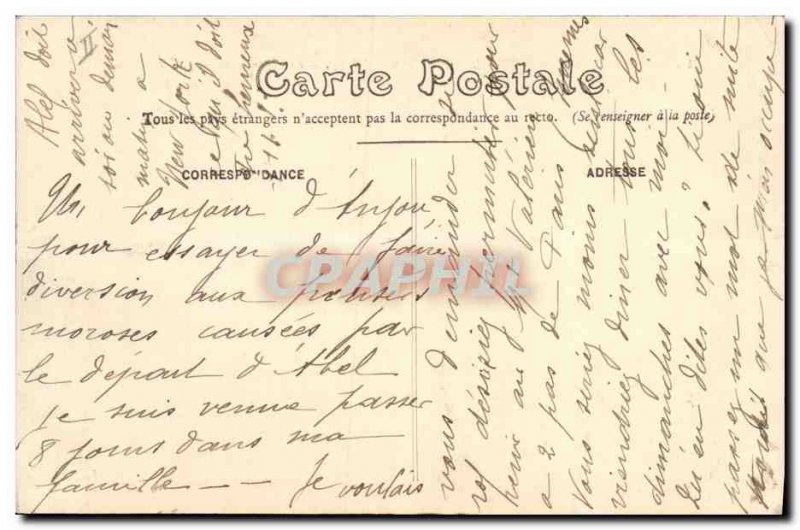 Carte Postale
Tous les pays étrangers n'acceptent pas la correspondance au recto. (Se renseigner à la poste)
CORRESPONDANCE
ADRESSE
CPAPHIL
Un bonjour d'Anjou
pour essayer de faire
diversion aux pensées
moroses causées par
le départ d'Abel
je suis venue passer
8 jours dans ma
famille — — Je voulais
vous demander
si désiriez permuter pour
venir au Mt Valérien
a 2 pas de Paris
Vous seriez moins seul car
viendriez diner tous les
dimanches avec moi
Qu'en dites vous,
passez un mot de suite
que je m'en occupe
Abel doit
arriver
soi ou demain
matin a
New York